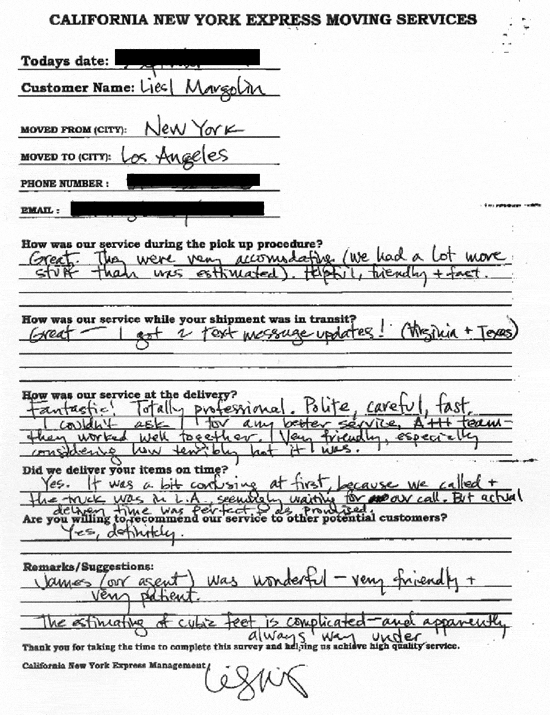 CALIFORNIA NEW YORK EXPRESS MOVING SERVICES
Todays date:
Customer Name: Liesl Margolin
MOVED FROM (CITY): New York
MOVED TO (CITY): Los Angeles
PHONE NUMBER :
EMAIL :
How was our service during the pick up procedure?
Great. They were very accomodating (we had a lot more
stuff than was estimated). Helpful, friendly + fast.
How was our service while your shipment was in transit?
Great — I got 2 text message updates! (Virginia + Texas)
How was our service at the delivery?
Fantastic! Totally professional. Polite, careful, fast.
I couldn't ask for any better service, A+++ team—
they worked well together. Very friendly, especially
considering how terribly hot it was.
Did we deliver your items on time?
Yes. It was a bit confusing at first, because we called +
the truck was in L.A., seemingly waiting for our call. But actual
delivery time was perfect & as promised.
Are you willing to recommend our service to other potential customers?
Yes, definitely.
Remarks/Suggestions:
James (our agent) was wonderful — very friendly +
very patient.
The estimating of cubic feet is complicated—and apparently
always way under
Thank you for taking the time to complete this survey and helping us achieve high quality service.
California New York Express Management